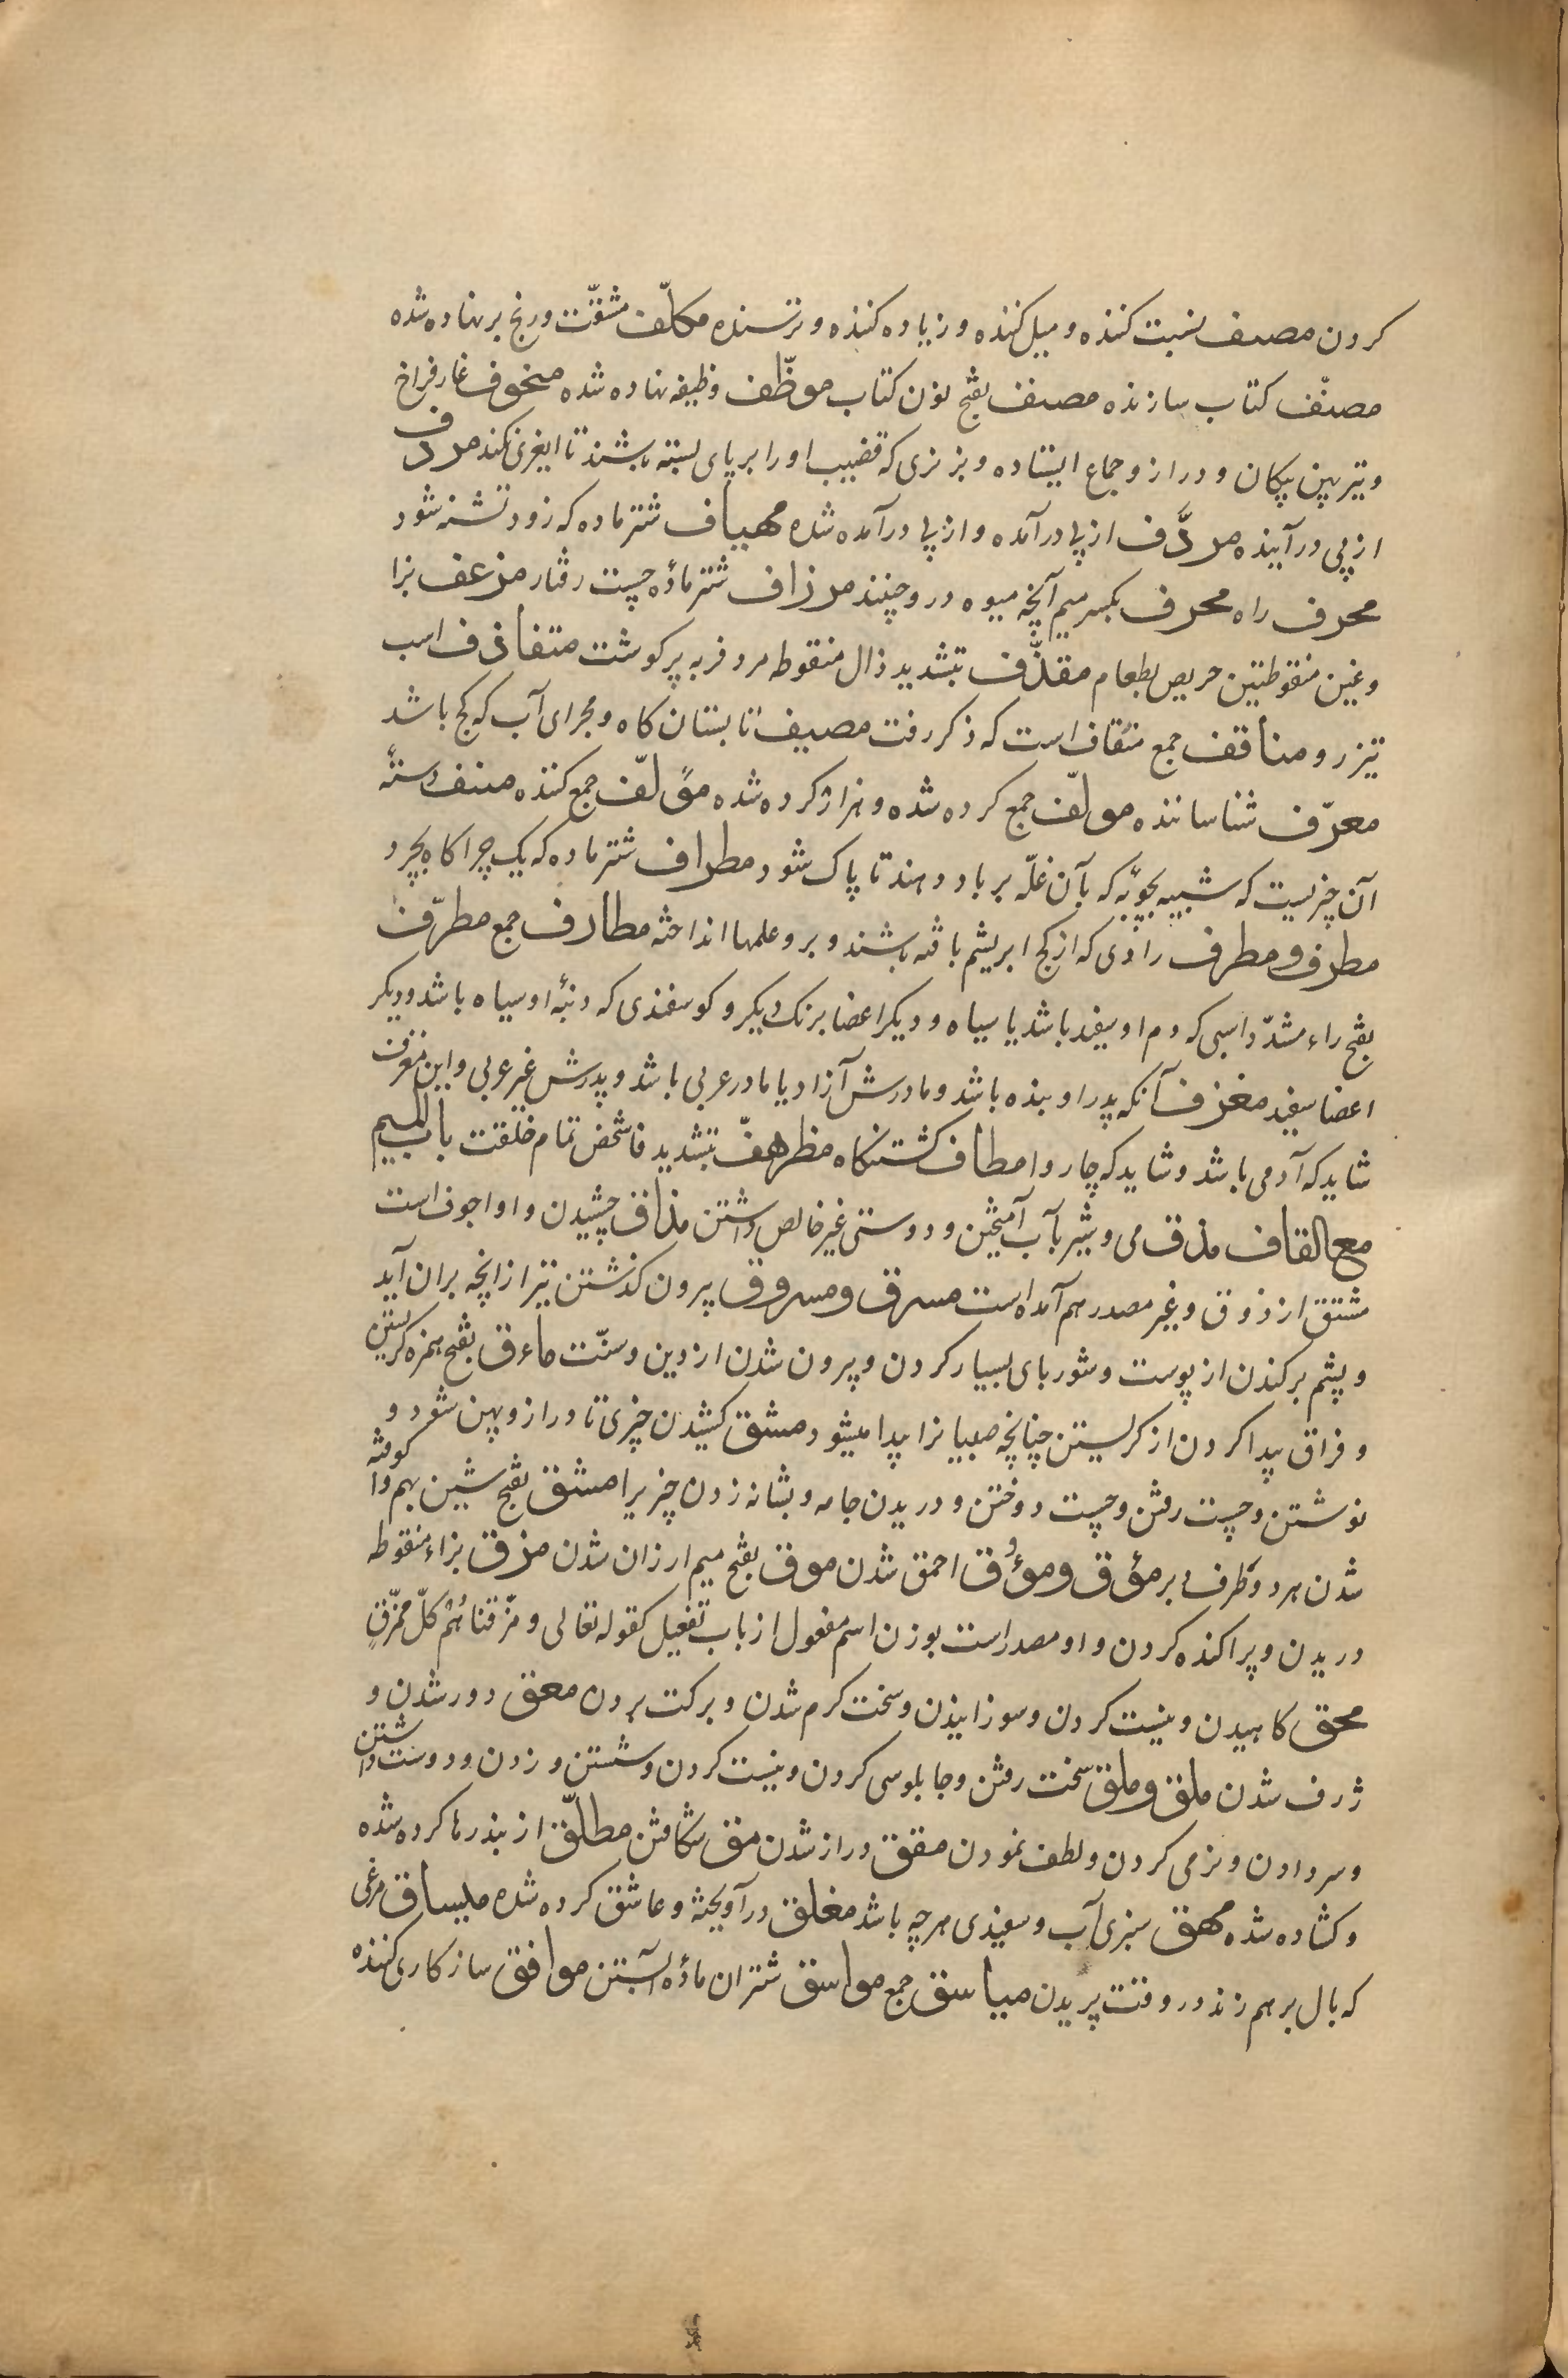 کردن مصنف نسبت کننده و میل کننده و زیاده کننده و ترسنده مکلّف مشقّت و رنج بر نهاده شده
مصنّف کتاب سازنده مصنف بفتح نون کتاب موظّف وظیفه نهاده شده منخوف غار فراخ
و تیر پهن پیکان و دراز و جماع ایستاده و بز نری که قضیب او را بر پای بسته باشند تا ایغری نکند مردف
از پی درآینده مردّف از پی درآمده و از پی درآمده شده مهیاف شتر ماده که زود تشنه شود
محرف راه محرف بکسر میم آنچه میوه درو چینند مرزاف شتر مادهٔ چست رفتار مزغف بزا
و غین منقوطتین حریص بطعام مقذّف بتشدید ذال منقوطه مرد فربه پر کوشت متقاذف اسب
تیزرو مناقف جمع منقاف است که ذکر رفت مصیف تابستان کاه و مجرای آب که کج باشد
معرّف شناساننده مولّف جمع کرده شده و هزار کرده شده مؤلّف جمع کننده منسف دستهٔ
آن چیزیست که شبیه بچوبه که بآن غلّه بر باد دهند تا پاک شود مطراف شتر ماده که یک چراکاه بچرد
مطرف و مطرف رادی که از کج ابریشم بافته باشند و برو علمها انداخته مطارف جمع مطرّف
بفتح راء مشدّد اسبی که دم او سفید باشد یا سیاه و دیکر اعضا برنک دیکر و کوسفندی که دنبهٔ او سیاه باشد و دیکر
اعضا سفید مغرف آنکه پدر او بنده باشد و مادرش آزاد یا مادر عربی باشد و پدرش غیر عربی و این مغرف
شاید که آدمی باشد و شاید که چاروا مطاف کشتنکاه مظرهفّ بتشدید فا شخص تمام خلقت باب المیم
مع القاف مذق می و شیر بآب آمیختن و دوستی غیر خالص داشتن مذاق چشیدن و او اجوف است
مشتق از ذوق و غیر مصدر هم آمده است مسرق و مسروق پرون کذشتن تیر از آنچه بران آید
و پشم برکندن از پوست و شوربای بسیار کردن و پرون شدن از دین و سنّت ماءق بفتح همزه کریستن
و فراق پیدا کردن از کریستن چنانچه صبیانرا پیدا میشود مشق کشیدن چیزی تا دراز و پهن شود و
نوشتن و چست رفتن و چست دوختن و دریدن جامه و بشانه زدن چیزیرا مشق بفتح شین بهم وا کوفته
شدن هر دو طرف دبر مؤق و مؤوق احمق شدن موق بفتح میم ارزان شدن مزق بزاء منقوطه
دریدن و پراکنده کردن و او مصدر است بوزن اسم مفعول از باب تفعیل کقوله تعالی و مزّقناهُم کلّ ممزّقٍ
محق کاهیدن و نیست کردن و سوزانیدن و سخت کرم شدن و برکت بردن معق دور شدن و
ژرف شدن ملق و ملق سخت رفتن و جابلوسی کردن و نیست کردن و شستن و زدن و دوست داشتن
و سر دادن و نرمی کردن و لطف نمودن مقق دراز شدن مق شکافتن مطلّق از بند رها کرده شده
و کشاده شده مهق سبزی آب و سفیدی هرچه باشد مغلق درآویخته و عاشق کرده شده میساق مرغی
که بال بر هم زند در وقت پریدن میاسق جمع مواسق شتران مادهٔ آبستن موافق سازکاری کننده